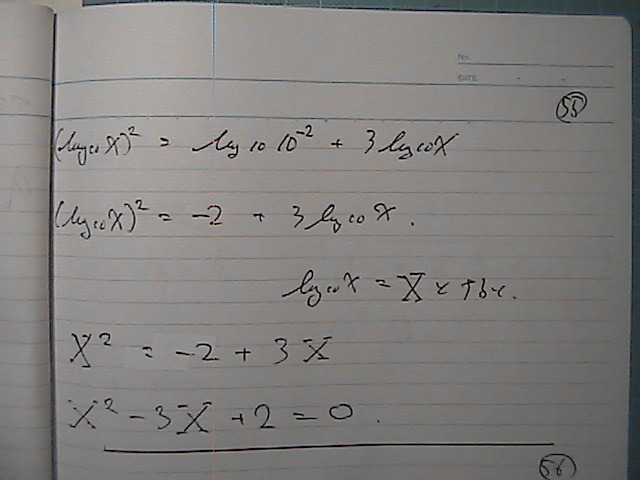 No.
DATE
55
(log10 X)² = log10 10⁻² + 3 log10 X
(log10 X)² = -2 + 3 log10 X.
log10 X = X とする.
X² = -2 + 3X
X² - 3X + 2 = 0.
56